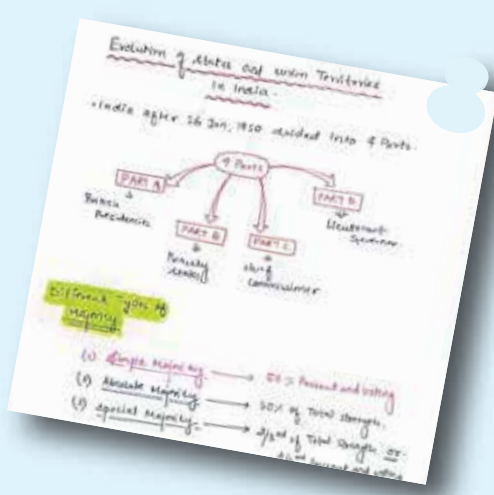 Evolution of states and union Territories
in India.
India after 26 Jan, 1950 divided into 4 Parts.
4 Parts
PART A
PART D
British
Presidencies
Lieutenant
Governor
PART B
PART C
Princely
states
chief
commissioner
Different Types of
Majority
(1) Simple Majority → 50% Present and voting
(2) Absolute Majority → 50% of Total strength.
(3) Special Majority → 2/3rd of Total Strength or
present and voting